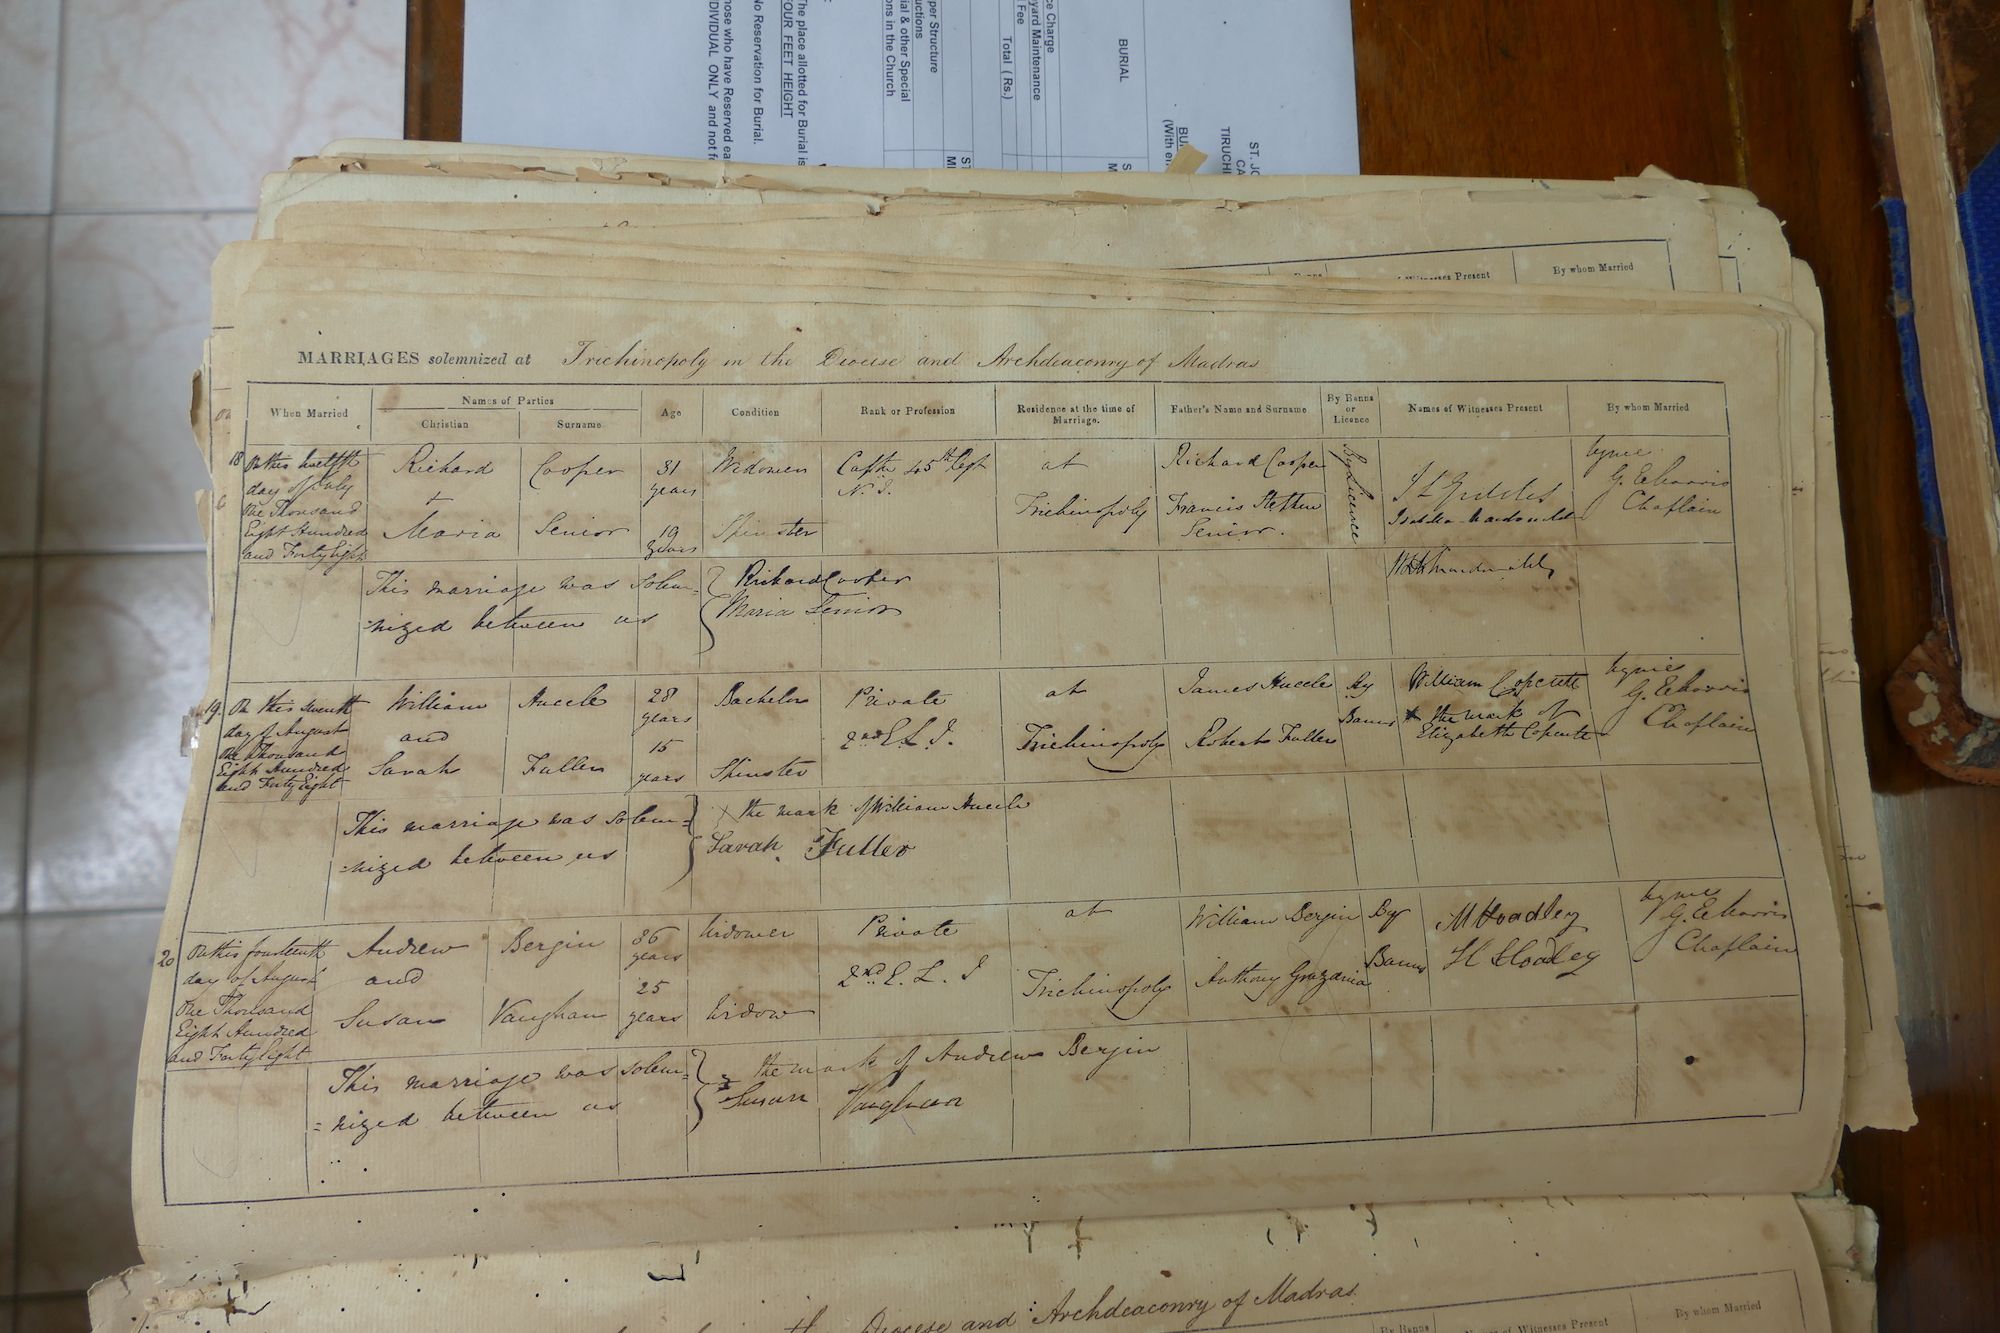 BURIAL
ce Charge
yard Maintenance
Fee Total (Rs.)
per Structure
ial & other Special
uctions
ons in the Church
The place allotted for Burial is
FOUR FEET HEIGHT
No Reservation for Burial.
hose who have Reserved ea
DIVIDUAL ONLY and not f
ST. JO
CA
TIRUCHI
BU
(With en
Witnesses Present By whom Married
MARRIAGES solemnized at Trichinopoly in the Diocese and Archdeaconry of Madras
When Married Names of Parties Age Condition Rank or Profession Residence at the time of Marriage. Father's Name and Surname By Banns or Licence Names of Witnesses Present By whom Married
Christian Surname
18 On this twelfth Richard Cooper 31 Widower Captn 45th Regt at Richard Cooper By Licence by me
day of July + years N. I. G. E. Harris
One Thousand Trichinopoly Francis Stephen Chaplain
Eight Hundred Maria Senior 19 Spinster Senior.
and Forty Eight years
This marriage was solem- Richard Cooper
=nized between us Maria Senior
19. On this seventh William 28 Bachelor Private at James By William by me
day of August and years 2nd E. L. I. Banns the mark of G. E. Harris
One Thousand 15 Trichinopoly Robert Fuller Elizabeth Chaplain
Eight Hundred Sarah Fuller years Spinster
and Forty Eight
This marriage was solem= x the mark of William
=nized between us Sarah Fuller
20 On this fourteenth Andrew Bergin 36 Widower Private at William Bergin By M Hoadley by me
day of August and years 2nd E. L. I Banns H Hoadley G. E. Harris
One Thousand 25 Trichinopoly Anthony Chaplain
Eight Hundred Susan Vaughan years Widow
and Forty Eight
This marriage was solem= x the mark of Andrew Bergin
=nized between us Susan Vaughan
Diocese and Archdeaconry of Madras.
By Banns of Witnesses Present By whom Married